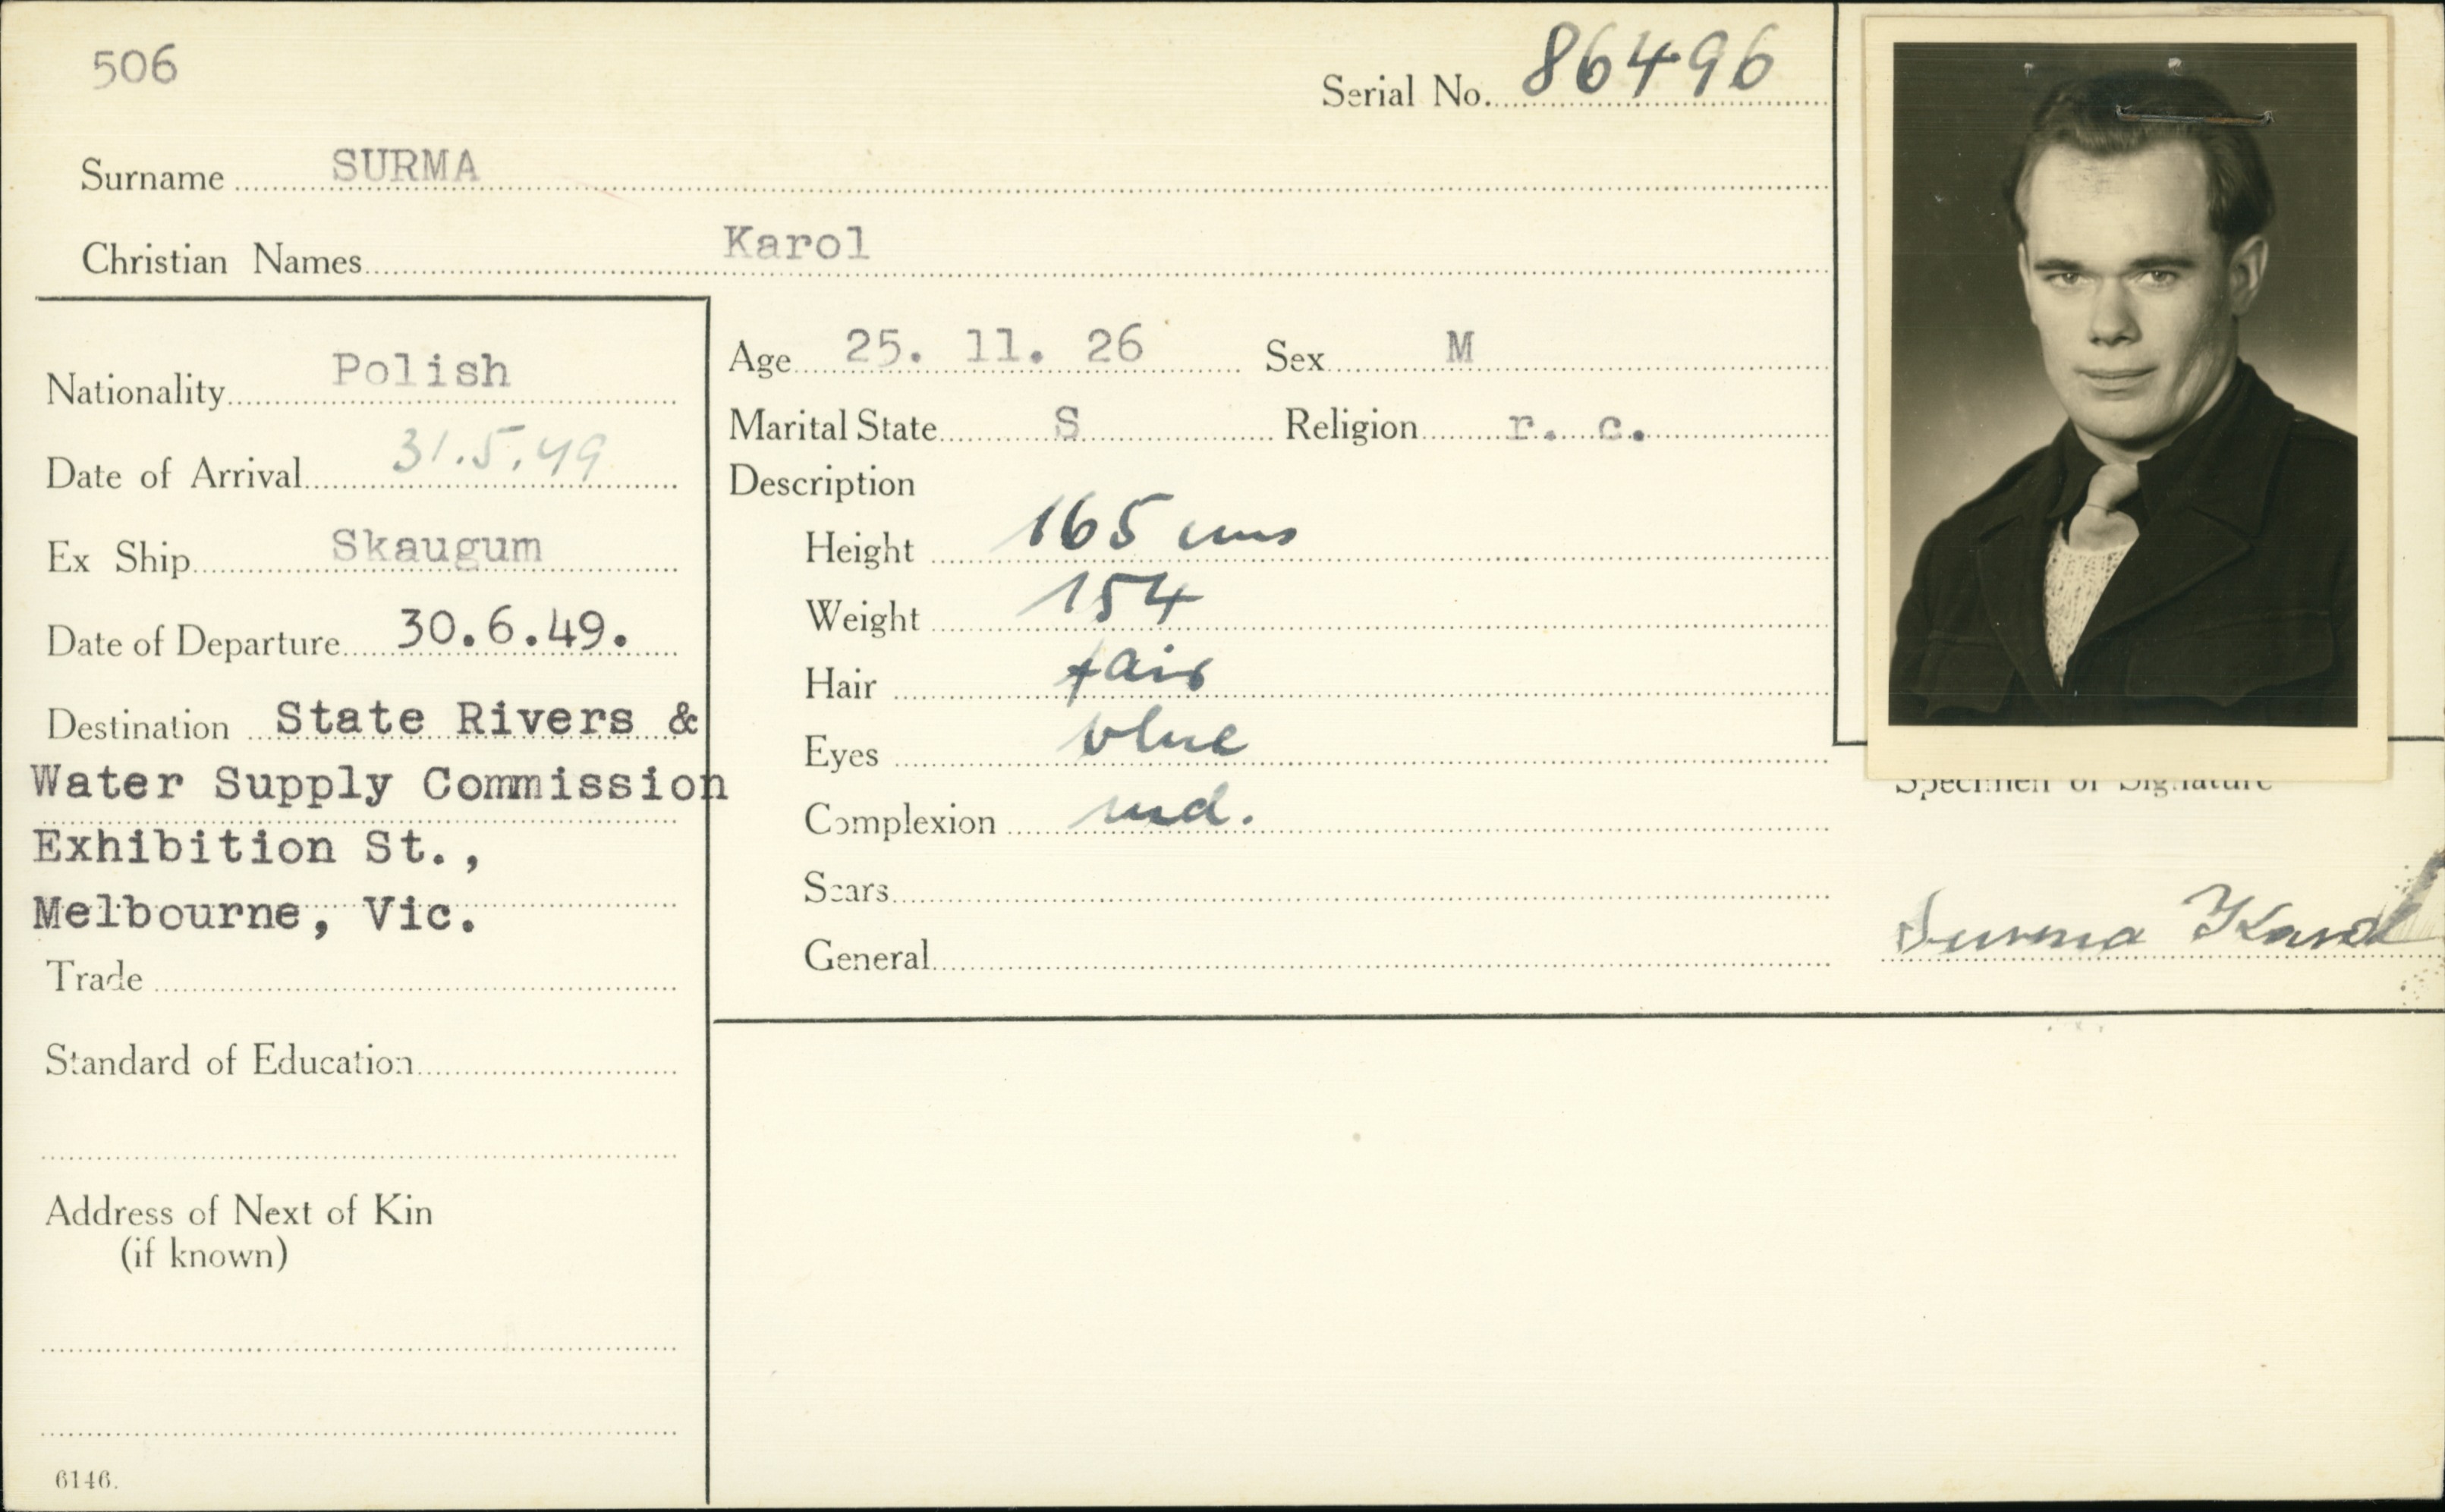 506
Serial No. 86496
Surname SURMA
Christian Names Karol
Nationality Polish
Date of Arrival 31.5.49
Ex Ship Skaugum
Date of Departure 30.6.49.
Destination State Rivers &
Water Supply Commission
Exhibition St.,
Melbourne, Vic.
Trade
Standard of Education
Address of Next of Kin
(if known)
6146.
Age 25. 11. 26 Sex M
Marital State S Religion r. c.
Description
Height 165 cms
Weight 154
Hair fair
Eyes blue
Complexion md.
Scars
General
Specimen of Signature
Surma Karol